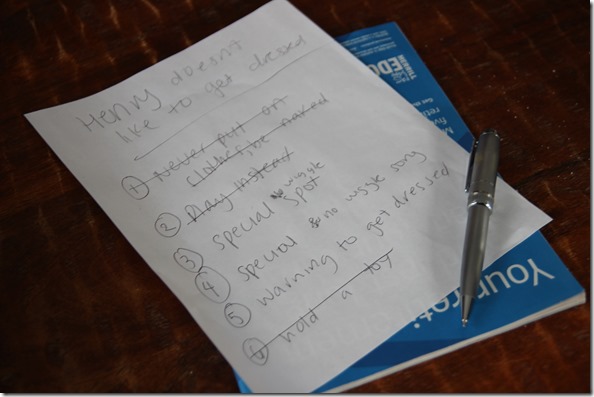 Henry doesn't
like to get dressed
1 Never put on
clothes, be naked
2 Play instead
3 special no wiggle spot
4 special & no wiggle song
5 warning to get dressed
6 hold a toy
EDGE
Your reti